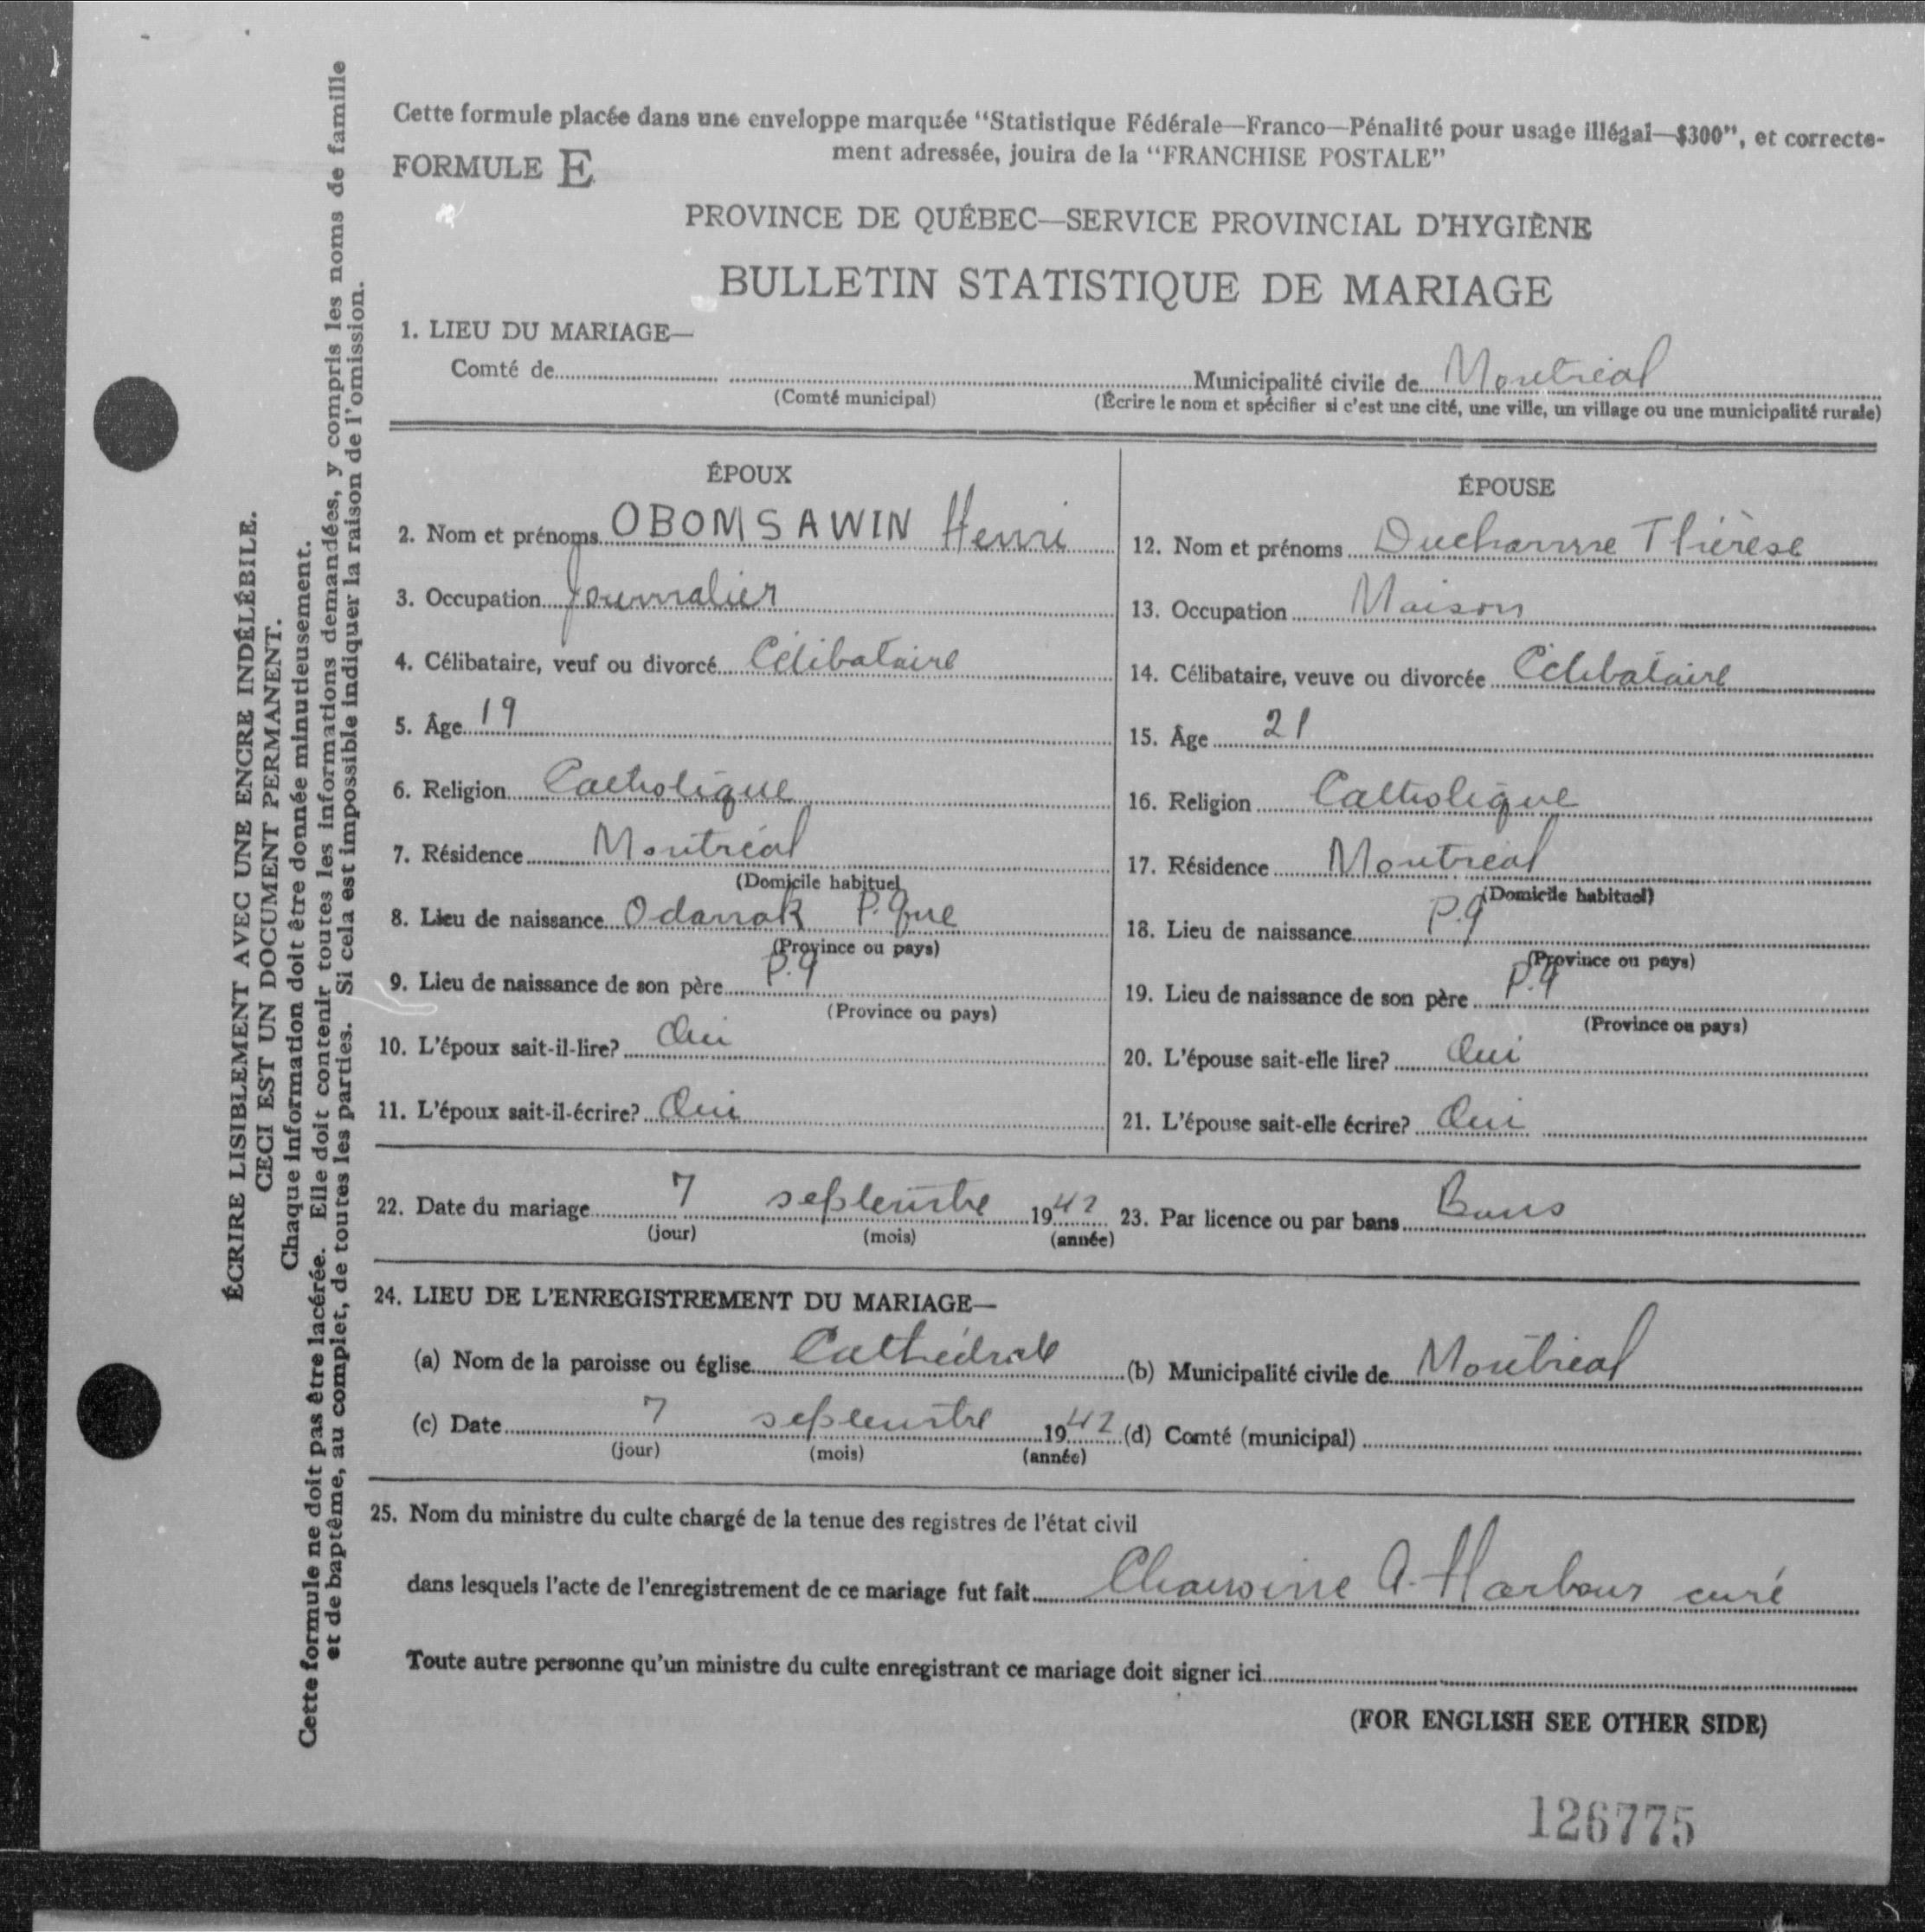 Cette formule placée dans une enveloppe marquée "Statistique Fédérale—Franco—Pénalité pour usage illégal—$300", et correcte-
ment adressée, jouira de la "FRANCHISE POSTALE"
FORMULE E
PROVINCE DE QUÉBEC—SERVICE PROVINCIAL D'HYGIÈNE
BULLETIN STATISTIQUE DE MARIAGE
1. LIEU DU MARIAGE—
Comté de Municipalité civile de Montréal
(Comté municipal) (Écrire le nom et spécifier si c'est une cité, une ville, un village ou une municipalité rurale)
ÉPOUX
2. Nom et prénoms OBOMSAWIN Henri
3. Occupation Journalier
4. Célibataire, veuf ou divorcé Célibataire
5. Âge 19
6. Religion Catholique
7. Résidence Montréal
(Domicile habituel
8. Lieu de naissance Odanak P. Que
(Province ou pays)
9. Lieu de naissance de son père P.q
(Province ou pays)
10. L'époux sait-il-lire? Oui
11. L'époux sait-il-écrire? Oui
ÉPOUSE
12. Nom et prénoms Ducharme Thérèse
13. Occupation Maison
14. Célibataire, veuve ou divorcée Célibataire
15. Âge 21
16. Religion Catholique
17. Résidence Montréal
(Domicile habituel)
18. Lieu de naissance P.q
(Province ou pays)
19. Lieu de naissance de son père P.q
(Province ou pays)
20. L'épouse sait-elle lire? Oui
21. L'épouse sait-elle écrire? Oui
22. Date du mariage 7 septembre 1942 23. Par licence ou par bans Bans
(jour) (mois) (année)
24. LIEU DE L'ENREGISTREMENT DU MARIAGE—
(a) Nom de la paroisse ou église Cathédrale (b) Municipalité civile de Montréal
(c) Date 7 septembre 1942 (d) Comté (municipal)
(jour) (mois) (année)
25. Nom du ministre du culte chargé de la tenue des registres de l'état civil
dans lesquels l'acte de l'enregistrement de ce mariage fut fait Chanoine A. Harbour curé
Toute autre personne qu'un ministre du culte enregistrant ce mariage doit signer ici
(FOR ENGLISH SEE OTHER SIDE)
126775
ÉCRIRE LISIBLEMENT AVEC UNE ENCRE INDÉLÉBILE.
CECI EST UN DOCUMENT PERMANENT.
Chaque information doit être donnée minutieusement.
Cette formule ne doit pas être lacérée. Elle doit contenir toutes les informations demandées, y compris les noms de famille
et de baptême, au complet, de toutes les parties. Si cela est impossible indiquer la raison de l'omission.